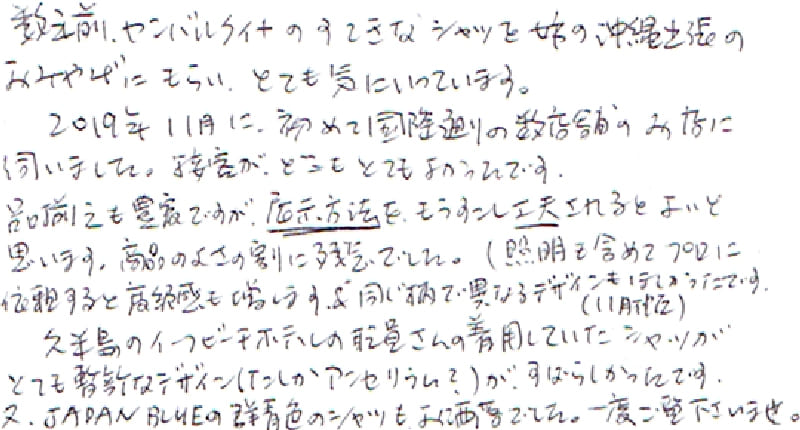 数年前、ヤンバルクイナのすてきなシャツを姉の沖縄出張の
おみやげにもらい、とても気にいっています。
2019年11月に、初めて国際通りの数店舗のお店に
伺いました。接客が、どこもとてもよかったです。
品揃えも豊富ですが、展示方法を、もう少し工夫されるとよいと
思います。商品のよさの割に残念でした。(照明も含めてプロに
依頼すると高級感も増します。同じ柄で異なるデザインもほしかったです。
(11月時点)
久米島のイーフビーチホテルの職員さんの着用していたシャツが
とても斬新なデザイン(たしかアンセリウム?)が、すばらしかったです。
又、JAPAN BLUEの群青色のシャツも お洒落でした。一度ご覧下さいませ。